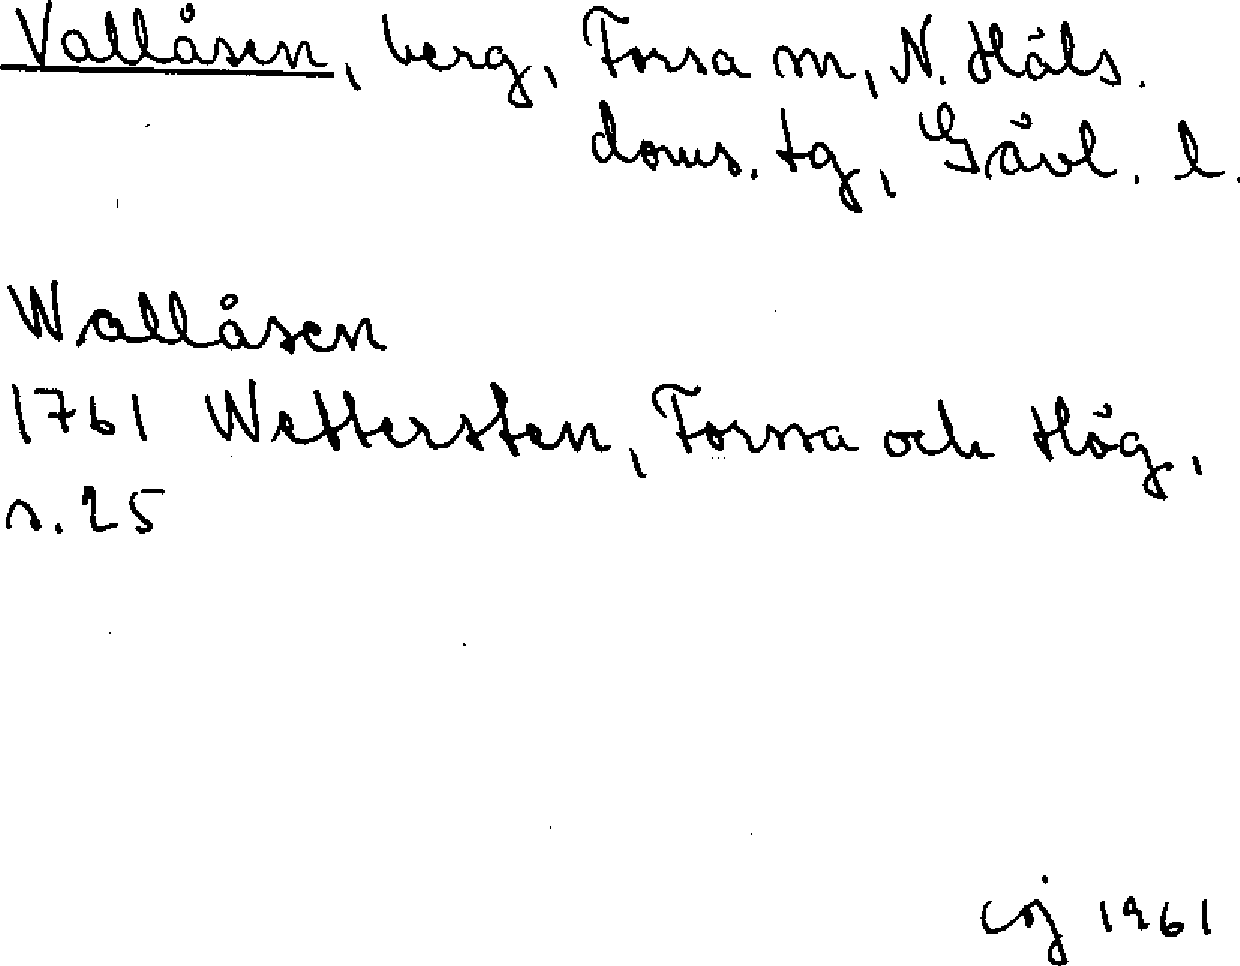 Vallåsen, berg, Forsa sn, N. Häls.
doms. tg, Gävl. l.
Wallåsen
1761 Wettersten, Forssa och Hög,
s. 25
coj 1961